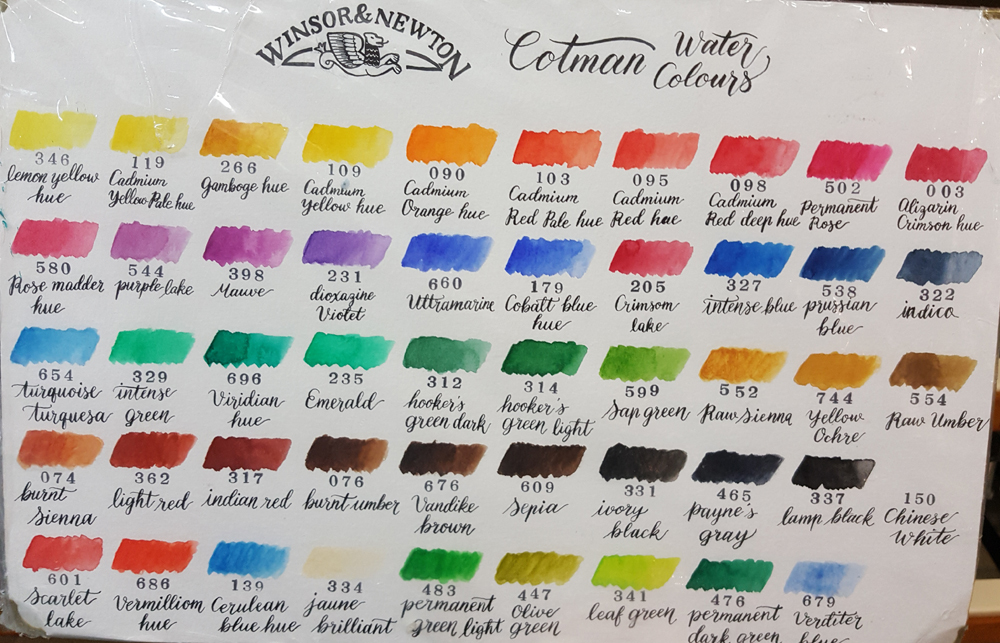 WINSOR&NEWTON
Cotman Water
Colours
346 119 266 109 090 103 095 098 502 003
lemon yellow hue
Cadmium Yellow Pale hue
Gamboge hue
Cadmium Yellow hue
Cadmium Orange hue
Cadmium Red Pale hue
Cadmium Red hue
Cadmium Red deep hue
Permanent Rose
Alizarin Crimson hue
580 544 398 231 660 179 205 327 538 322
Rose madder hue
purple lake
Mauve
dioxazine Violet
Ultramarine
Cobalt blue hue
Crimsom lake
intense blue
prussian blue
indico
654 329 696 235 312 314 599 552 744 554
turquoise turquesa
intense green
Viridian hue
Emerald
hooker's green dark
hooker's green light
Sap green
Raw Sienna
Yellow Ochre
Raw Umber
074 362 317 076 676 609 331 465 337 150
burnt Sienna
light red
indian red
burnt umber
Vandike brown
Sepia
ivory black
payne's gray
lamp black
Chinese White
601 686 139 334 483 447 341 476 679
Scarlet lake
Vermilliom hue
Cerulean blue hue
jaune brilliant
permanent green light
Olive green
leaf green
permanent dark green
Verditer blue